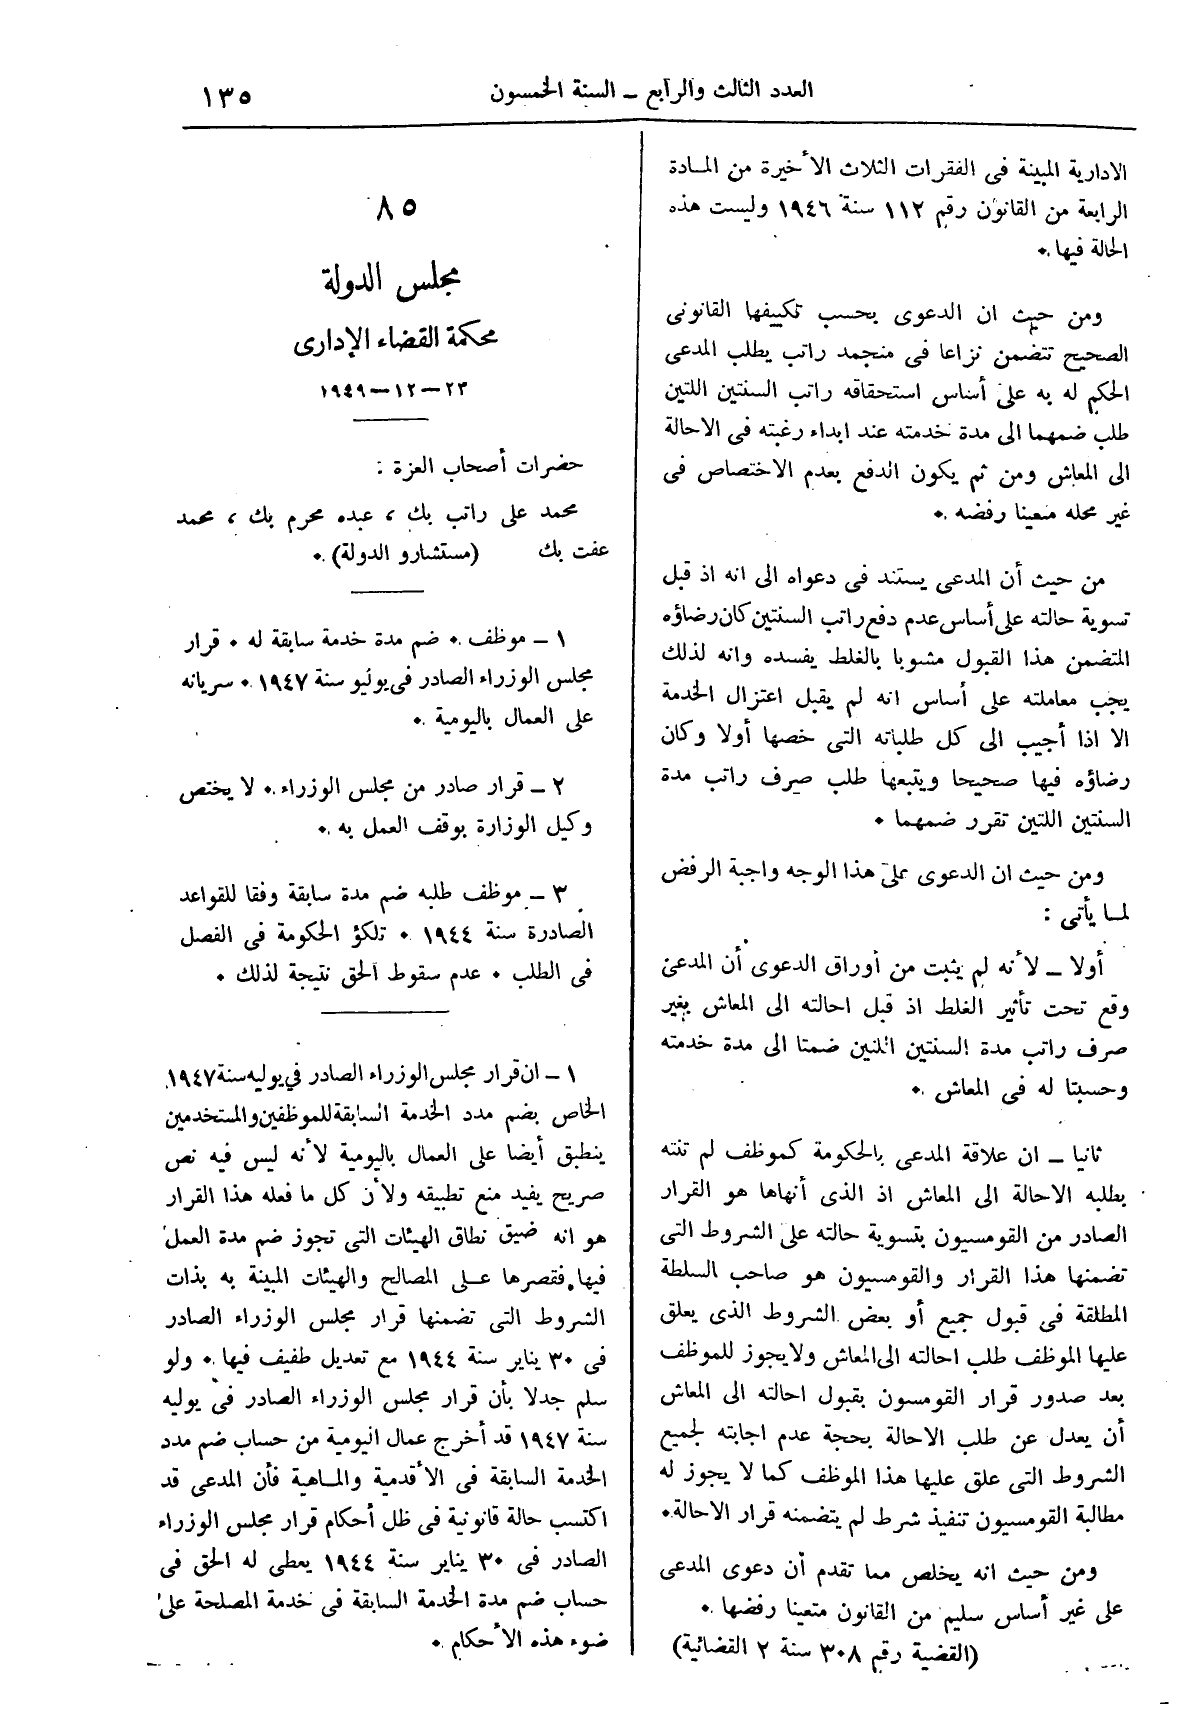 العدد الثالث والرابع – السنة الخمسون
١٣٥
الادارية المبينة فى الفقرات الثلاث الأخيرة من المادة
الرابعة من القانون رقم ١١٢ سنة ١٩٤٦ وليست هذه
الحالة فيها .
ومن حيث ان الدعوى بحسب تكييفها القانونى
الصحيح تتضمن نزاعا فى منجمد راتب يطلب المدعى
الحكم له به على أساس استحقاقه راتب السنتين اللتين
طلب ضمهما الى مدة خدمته عند ابداء رغبته فى الاحالة
الى المعاش ومن ثم يكون الدفع بعدم الاختصاص فى
غير محله متعينا رفضه .
من حيث أن المدعى يستند فى دعواه الى انه اذ قبل
تسوية حالته على أساس عدم دفع راتب السنتين كان رضاؤه
المتضمن هذا القبول مشوبا بالغلط يفسده وانه لذلك
يجب معاملته على أساس انه لم يقبل اعتزال الخدمة
الا اذا أجيب الى كل طلباته التى خصها أولا وكان
رضاؤه فيها صحيحا ويتبعها طلب صرف راتب مدة
السنتين اللتين تقرر ضمهما .
ومن حيث ان الدعوى على هذا الوجه واجبة الرفض
لما يأتى :
أولا – لأنه لم يثبت من أوراق الدعوى أن المدعى
وقع تحت تأثير الغلط اذ قبل احالته الى المعاش بغير
صرف راتب مدة السنتين اللتين ضمتا الى مدة خدمته
وحسبتا له فى المعاش .
ثانيا – ان علاقة المدعى بالحكومة كموظف لم تنته
بطلبه الاحالة الى المعاش اذ الذى أنهاها هو القرار
الصادر من القومسيون بتسوية حالته على الشروط التى
تضمنها هذا القرار والقومسيون هو صاحب السلطة
المطلقة فى قبول جميع أو بعض الشروط الذى يعلق
عليها الموظف طلب احالته الى المعاش ولا يجوز للموظف
بعد صدور قرار القومسون بقبول احالته الى المعاش
أن يعدل عن طلب الاحالة بحجة عدم اجابته لجميع
الشروط التى علق عليها هذا الموظف كما لا يجوز له
مطالبة القومسيون تنفيذ شرط لم يتضمنه قرار الاحالة .
ومن حيث انه يخلص مما تقدم أن دعوى المدعى
على غير أساس سليم من القانون متعينا رفضها .
(القضية رقم ٣٠٨ سنة ٢ القضائية)
٨٥
مجلس الدولة
محكمة القضاء الإدارى
٢٣–١٢–١٩٤٩
حضرات أصحاب العزة :
محمد على راتب بك ، عبده محرم بك ، محمد
عفت بك (مستشارو الدولة) .
١ – موظف . ضم مدة خدمة سابقة له . قرار
مجلس الوزراء الصادر فى يونيو سنة ١٩٤٧ . سريانه
على العمال باليومية .
٢ – قرار صادر من مجلس الوزراء . لا يختص
وكيل الوزارة بوقف العمل به .
٣ – موظف طلبه ضم مدة سابقة وفقا للقواعد
الصادرة سنة ١٩٤٤ . تلكؤ الحكومة فى الفصل
فى الطلب . عدم سقوط الحق نتيجة لذلك .
١ – ان قرار مجلس الوزراء الصادر فى يوليه سنة ١٩٤٧
الخاص بضم مدد الخدمة السابقة للموظفين والمستخدمين
ينطبق أيضا على العمال باليومية لأنه ليس فيه نص
صريح يفيد منع تطبيقه ولأن كل ما فعله هذا القرار
هو انه ضيق نطاق الهيئات التى تجوز ضم مدة العمل
فيها فقصرها على المصالح والهيئات المبينة به بذات
الشروط التى تضمنها قرار مجلس الوزراء الصادر
فى ٣٠ يناير سنة ١٩٤٤ مع تعديل طفيف فيها . ولو
سلم جدلا بأن قرار مجلس الوزراء الصادر فى يوليه
سنة ١٩٤٧ قد أخرج عمال اليومية من حساب ضم مدد
الخدمة السابقة فى الأقدمية والماهية فأن المدعى قد
اكتسب حالة قانونية فى ظل أحكام قرار مجلس الوزراء
الصادر فى ٣٠ يناير سنة ١٩٤٤ يعطى له الحق فى
حساب ضم مدة الخدمة السابقة فى خدمة المصلحة على
ضوء هذه الأحكام .